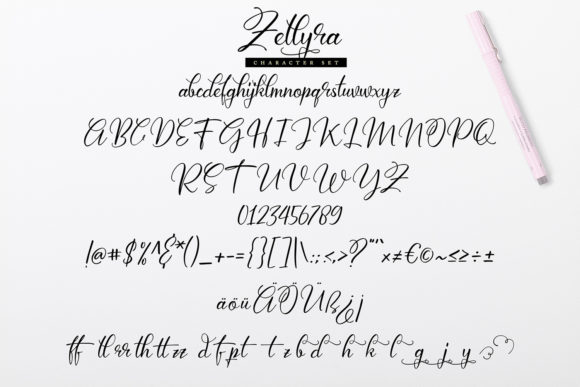 Zellyra
CHARACTER SET
abcdefghijklmnopqrstuvwxyz
ABCDEFGHIJKLMNOPQ
RSTUVWYZ
0123456789
!@#$%^&*()_+-={}[]|\:;<,>?"'`×≠€©~≤≥÷±
äöüÄÖÜß¿¡
ff tl rr th tt zz d f p t t z b d h k l g j y